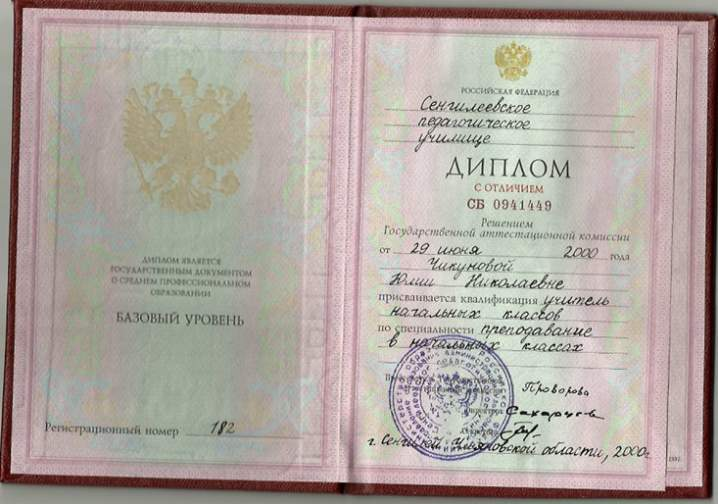 ДИПЛОМ ЯВЛЯЕТСЯ
ГОСУДАРСТВЕННЫМ ДОКУМЕНТОМ
О СРЕДНЕМ ПРОФЕССИОНАЛЬНОМ
ОБРАЗОВАНИИ
БАЗОВЫЙ УРОВЕНЬ
Регистрационный номер 182
РОССИЙСКАЯ ФЕДЕРАЦИЯ
Сенгилеевское
педагогическое
училище
ДИПЛОМ
С ОТЛИЧИЕМ
СБ 0941449
Решением
Государственной аттестационной комиссии
от 29 июня 2000 года
Чикуновой
Юлии Николаевне
присваивается квалификация учитель
начальных классов
по специальности преподавание
в начальных классах
Проворова
г. Ульяновской области, 2000г.